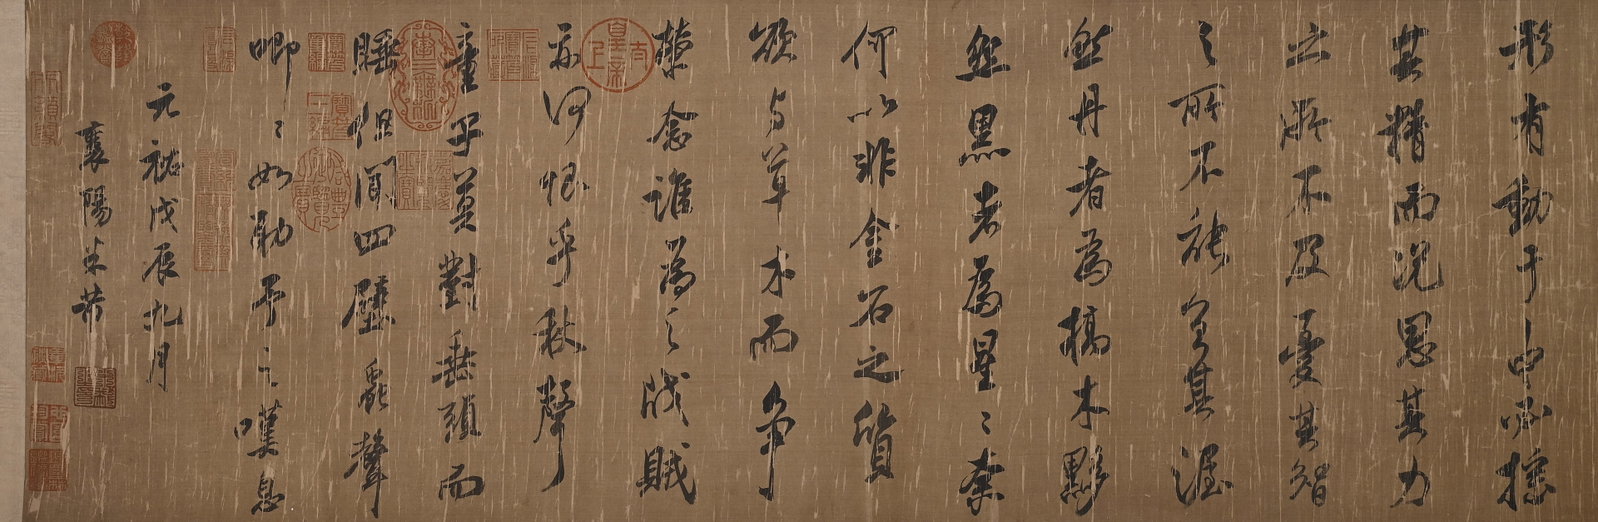 形有動于中必搖
其精而況思其力
之所不及憂其智
之所不能宜其渥
然丹者為槁木黟
然黑者為星〻奈
何以非金石之質
欲与草木而爭
榮念誰為之戕賊
亦何恨乎秋聲
童子莫對垂頭而
睡但聞四壁蟲聲
唧〻如助予之嘆息
元祐戊辰九月
襄陽米芾